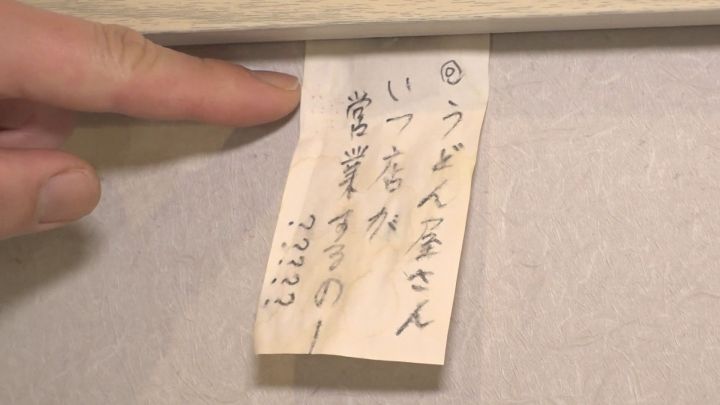 ◎うどん屋さん
いつ店が
営業するのー
?????